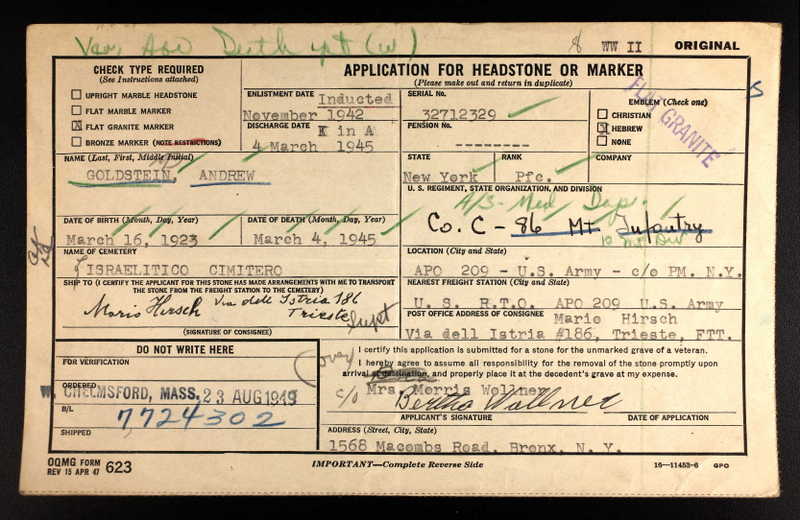 WW II ORIGINAL
CHECK TYPE REQUIRED
(See Instructions attached)
UPRIGHT MARBLE HEADSTONE
FLAT MARBLE MARKER
X FLAT GRANITE MARKER
BRONZE MARKER (NOTE RESTRICTIONS)
ENLISTMENT DATE Inducted
November 1942
DISCHARGE DATE K in A
4 March 1945
APPLICATION FOR HEADSTONE OR MARKER
(Please make out and return in duplicate)
SERIAL No.
32712329
PENSION No.
--------
EMBLEM (Check one)
CHRISTIAN
X HEBREW
NONE
FLAT GRANITE
NAME (Last, First, Middle Initial)
GOLDSTEIN, ANDREW
STATE
New York
RANK
Pfc.
COMPANY
U. S. REGIMENT, STATE ORGANIZATION, AND DIVISION
Co. C - 86 Mt Infantry
DATE OF BIRTH (Month, Day, Year)
March 16, 1923
DATE OF DEATH (Month, Day, Year)
March 4, 1945
NAME OF CEMETERY
ISRAELITICO CIMITERO
LOCATION (City and State)
APO 209 - U.S. Army - c/o PM. N.Y.
SHIP TO (I CERTIFY THE APPLICANT FOR THIS STONE HAS MADE ARRANGEMENTS WITH ME TO TRANSPORT
THE STONE FROM THE FREIGHT STATION TO THE CEMETERY)
Mario Hirsch Via dell Istria 186
Trieste
Supt
(SIGNATURE OF CONSIGNEE)
NEAREST FREIGHT STATION (City and State)
U. S. R.T.O. APO 209 U.S. Army
POST OFFICE ADDRESS OF CONSIGNEE Mario Hirsch
Via dell Istria #186, Trieste, FTT.
DO NOT WRITE HERE
FOR VERIFICATION
ORDERED
W. CHELMSFORD, MASS. 23 AUG 1949
B/L
7724302
SHIPPED
(over)
I certify this application is submitted for a stone for the unmarked grave of a veteran.
I hereby agree to assume all responsibility for the removal of the stone promptly upon
arrival at destination, and properly place it at the decedent's grave at my expense.
c/o Mrs. Morris Wollner
Bertha Wollner
APPLICANT'S SIGNATURE DATE OF APPLICATION
ADDRESS (Street, City, State)
1568 Macombs Road, Bronx, N. Y.
OQMG FORM
REV 15 APR 47 623
IMPORTANT—Complete Reverse Side
16—11453-6 GPO